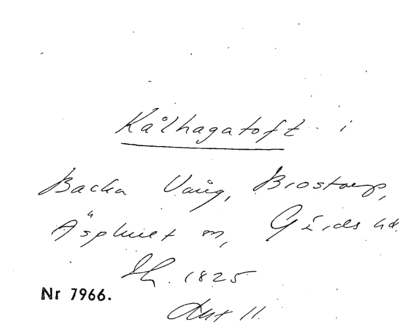 Kålhagatoft i
Backa Vång, Brostorp,
Äsphult sn, Gärds hd.
Sk. 1825
Akt 11
Nr 7966.